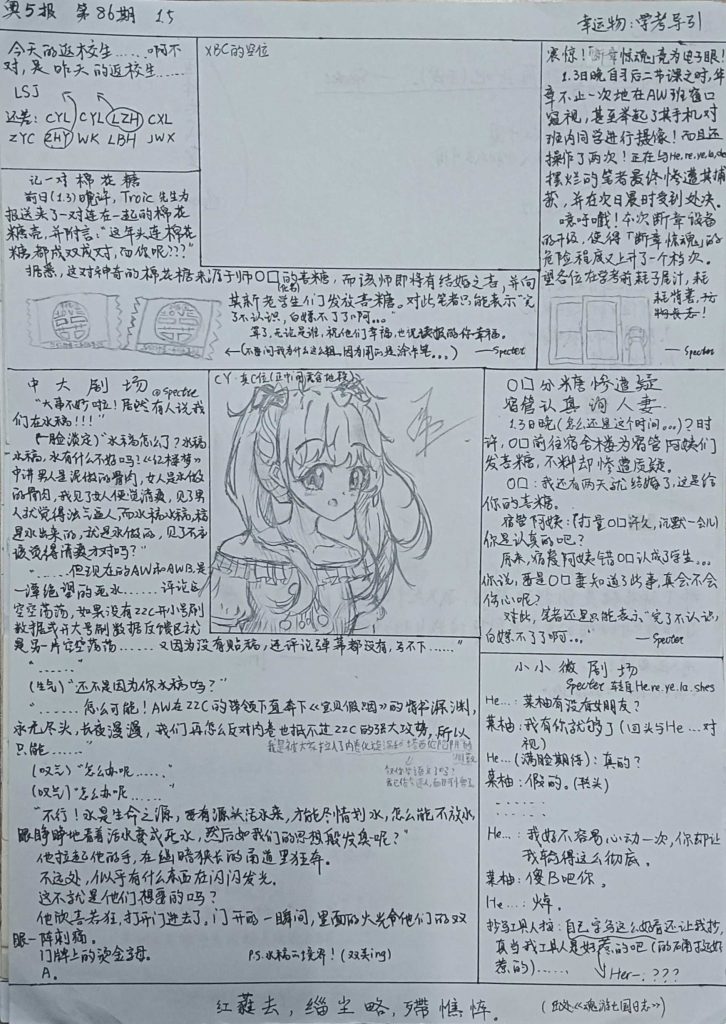 奥5报 第86期 1.5
幸运物：学考导引
今天的返校生……啊不
对，是 昨天的返校生……
LSJ
还差：CYL CYL LZH CXL
ZYC ZHY WK LBH JWX
XBC的星位
震惊！「断章惊魂」竟为电子眼！
1.3日晚自习后二节课之时，华
章不止一次地在AW班窗口
窥视，甚至举起了其手机对
班内同学进行摄像！而且还
操作了两次！正在与He.re.ye.la.shes
摆烂的笔者最终惨遭其捕
获，并在次日晨时受到处决。
喷呼戲！本次断章设备
的升级，使得「断章惊魂」的
危险程度又上升了一个档次。
望各位在学考前耗子尾汁，耗
耗惜书，玩
物长志！
——Specter
记一对棉花糖
前日(1.3)晚评，Troic先生为
报送来了一对连在一起的棉花
糖壳，并附言：“这年头连棉花
糖都成双成对，而你呢???”
据悉，这对神奇的棉花糖来源于师〇口的喜糖，而该师即将有结婚之喜，并向
其新老学生们发放喜糖。对此笔者只能表示“完
了不认识，白嫖不了了啊…”
——Specter
中大剧场 @specter
“大事不妙啦！居然有人说我
们在水稿！！！”
(一脸淡定)“水稿怎么了？水稿
水稿，水有什么不好吗？《红楼梦》
中讲男人是泥做的骨肉，女人是水做
的骨肉，我见了女人便觉清爽，见了男
人就觉得浊气逼人，而水稿水稿，稿
是水出来的，就是水做的，见了不应
该觉得清爽才对吗？”
“……但现在的AW和AWB是
一潭绝望的死水……评论区
空空荡荡，如果没有ZZC开小号刷
数据或开大号刷数据反馈区就
是另一片空空荡荡……又因为没有贴稿，连评论弹幕都没有，写不下……”
“……”
(生气)“还不是因为你水稿吗？”
“……怎么可能！AW在ZZC的带领下直奔下《宝贝假因》的皆字深渊，
永无尽头，长夜漫漫，我们再怎么反对内卷也抵不过ZZC的强大攻势，所以
只能……”
(叹气)“怎么办呢……”
(叹气)“怎么办呢……”
“不行！水是生命之源，要有源头活水来，才能尽情划水，怎么能不放水，
眼睁睁地看着活水变成死水，然后如我们的思想般发臭呢？”
他拉起他的手，在幽暗狭长的甬道里狂奔。
不远处，似乎有什么东西在闪闪发光。
这不就是他们想要的吗？
他欣喜若狂，打开门进去了，门开的一瞬间，里面的火光令他们的双
眼一阵刺痛。
门牌上的烫金字母。
A。
P.S.水稿二境界！(双关ing)
〇口分糖惨遭疑
宿管认真询人妻
1.3日晚(怎么还是这个时间…)？时
许，〇口前往宿舍楼为宿管阿姨们
发喜糖，不料却惨遭质疑。
〇口：我还有两天就结婚了，这是给
你的喜糖。
宿管阿姨：(打量〇口许久，沉默一会儿)
你是认真的吧？
原来，宿管阿姨错〇口认成了学生…
你说，要是〇口妻知道了此事，真会不会
伤心呢？
对此，笔者还是只能表示“完了不认识，
白嫖不了了啊…”
——Specter
小小微剧场
Specter 转自He.re.ye.la.shes
He…：菜柚有没有女朋友？
菜柚：我有你就够了(回头与He…对
视)
He…(满脸期待)：真的？
菜柚：假的。(转头)
……
……
He…：我好不容易心动一次，你却让
我输得这么彻底。
菜柚：傻B吧你。
He…：焯。
抄写工具人按：自己字写这么好看还让我抄，
真当我工具人是好惹的吧(的确挺好
惹的)……
Her-：???
红蕤去，缁尘略，殢憔悴。
(出处《魂游七国日志》)